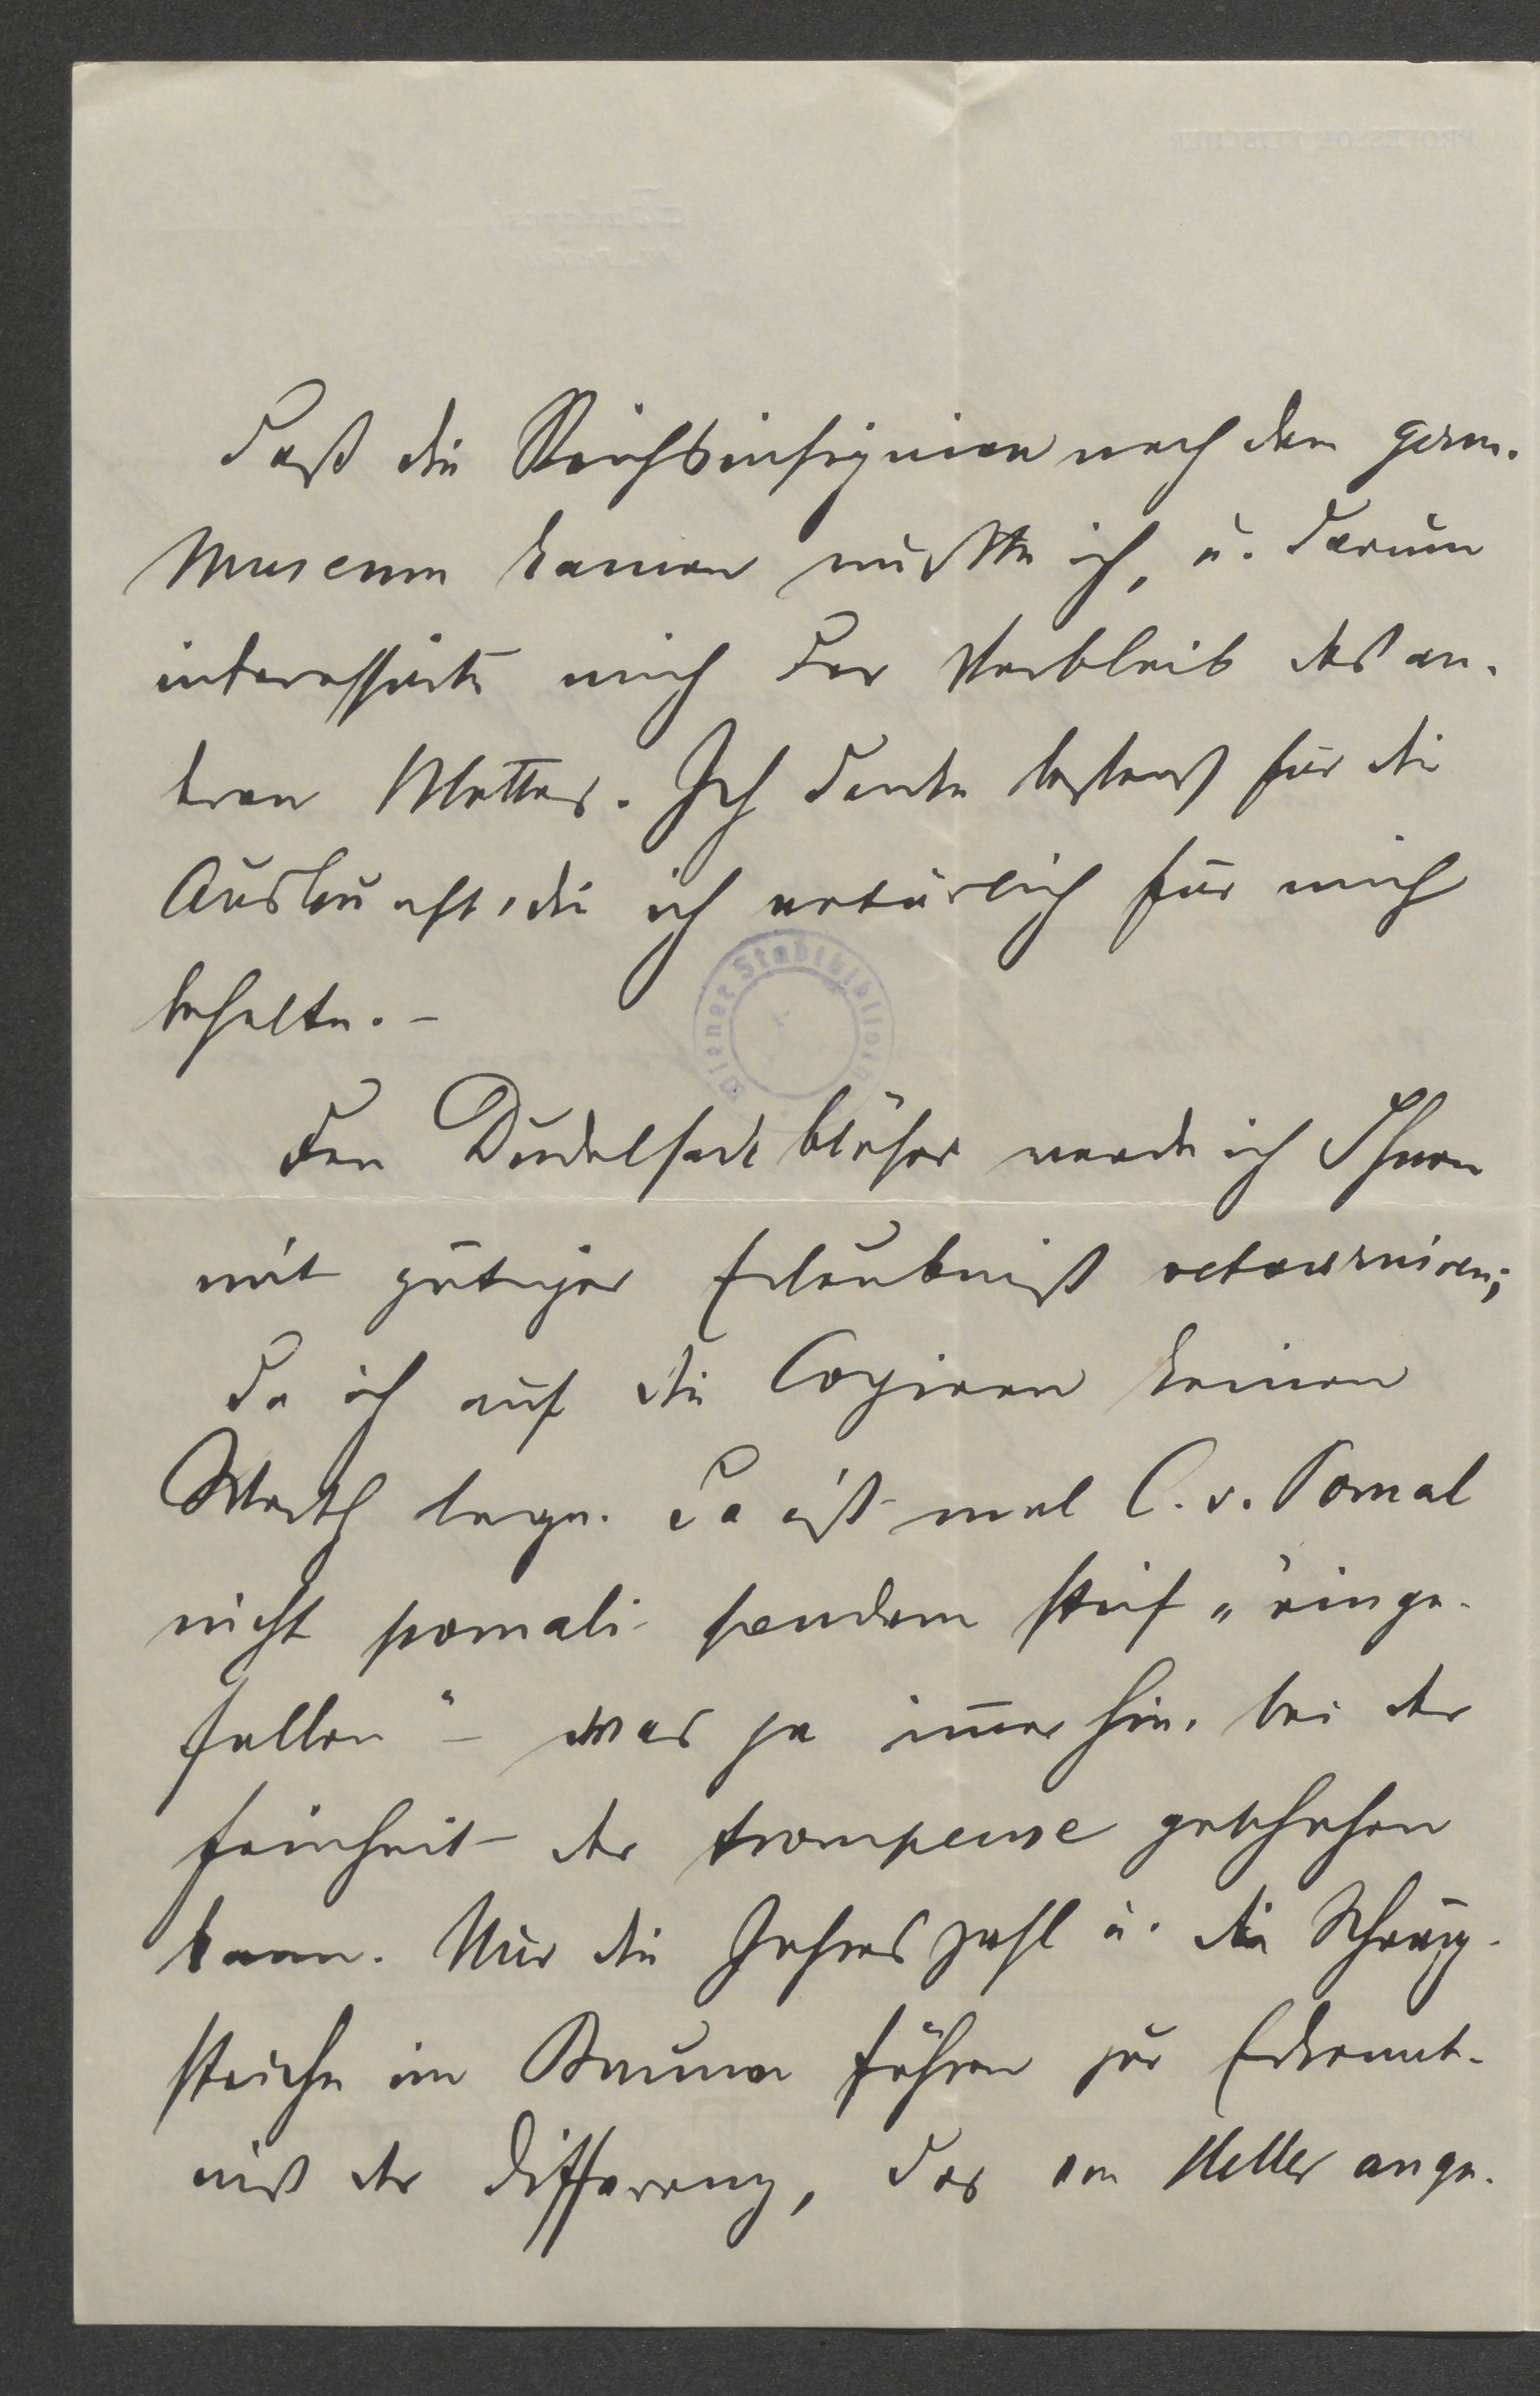 Daß die Reichsinsignien nach dem germ.
Museum kamen wußte ich, u. darum
interessirte mich der Verbleib des an-
deren Blattes. Ich danke bestens für die
Auskunft, die ich natürlich für mich
behalte. –
Wiener Stadtbibliothek
Den Dudelsackbläser werde ich Ihnen
mit gütiger Erlaubniß retourniren;
da ich auf die Copieen keinen
Werth lege. Da ist mal C. v. Pomal
nicht pomali sondern steif „einge-
fallen" – was ja immerhin bei der
Feinheit der trompeuse geschehen
kann. Nur die Jahreszahl u. die Schräg-
striche im Baume führen zur Erkennt-
niß der Differenz, das von Heller ange-